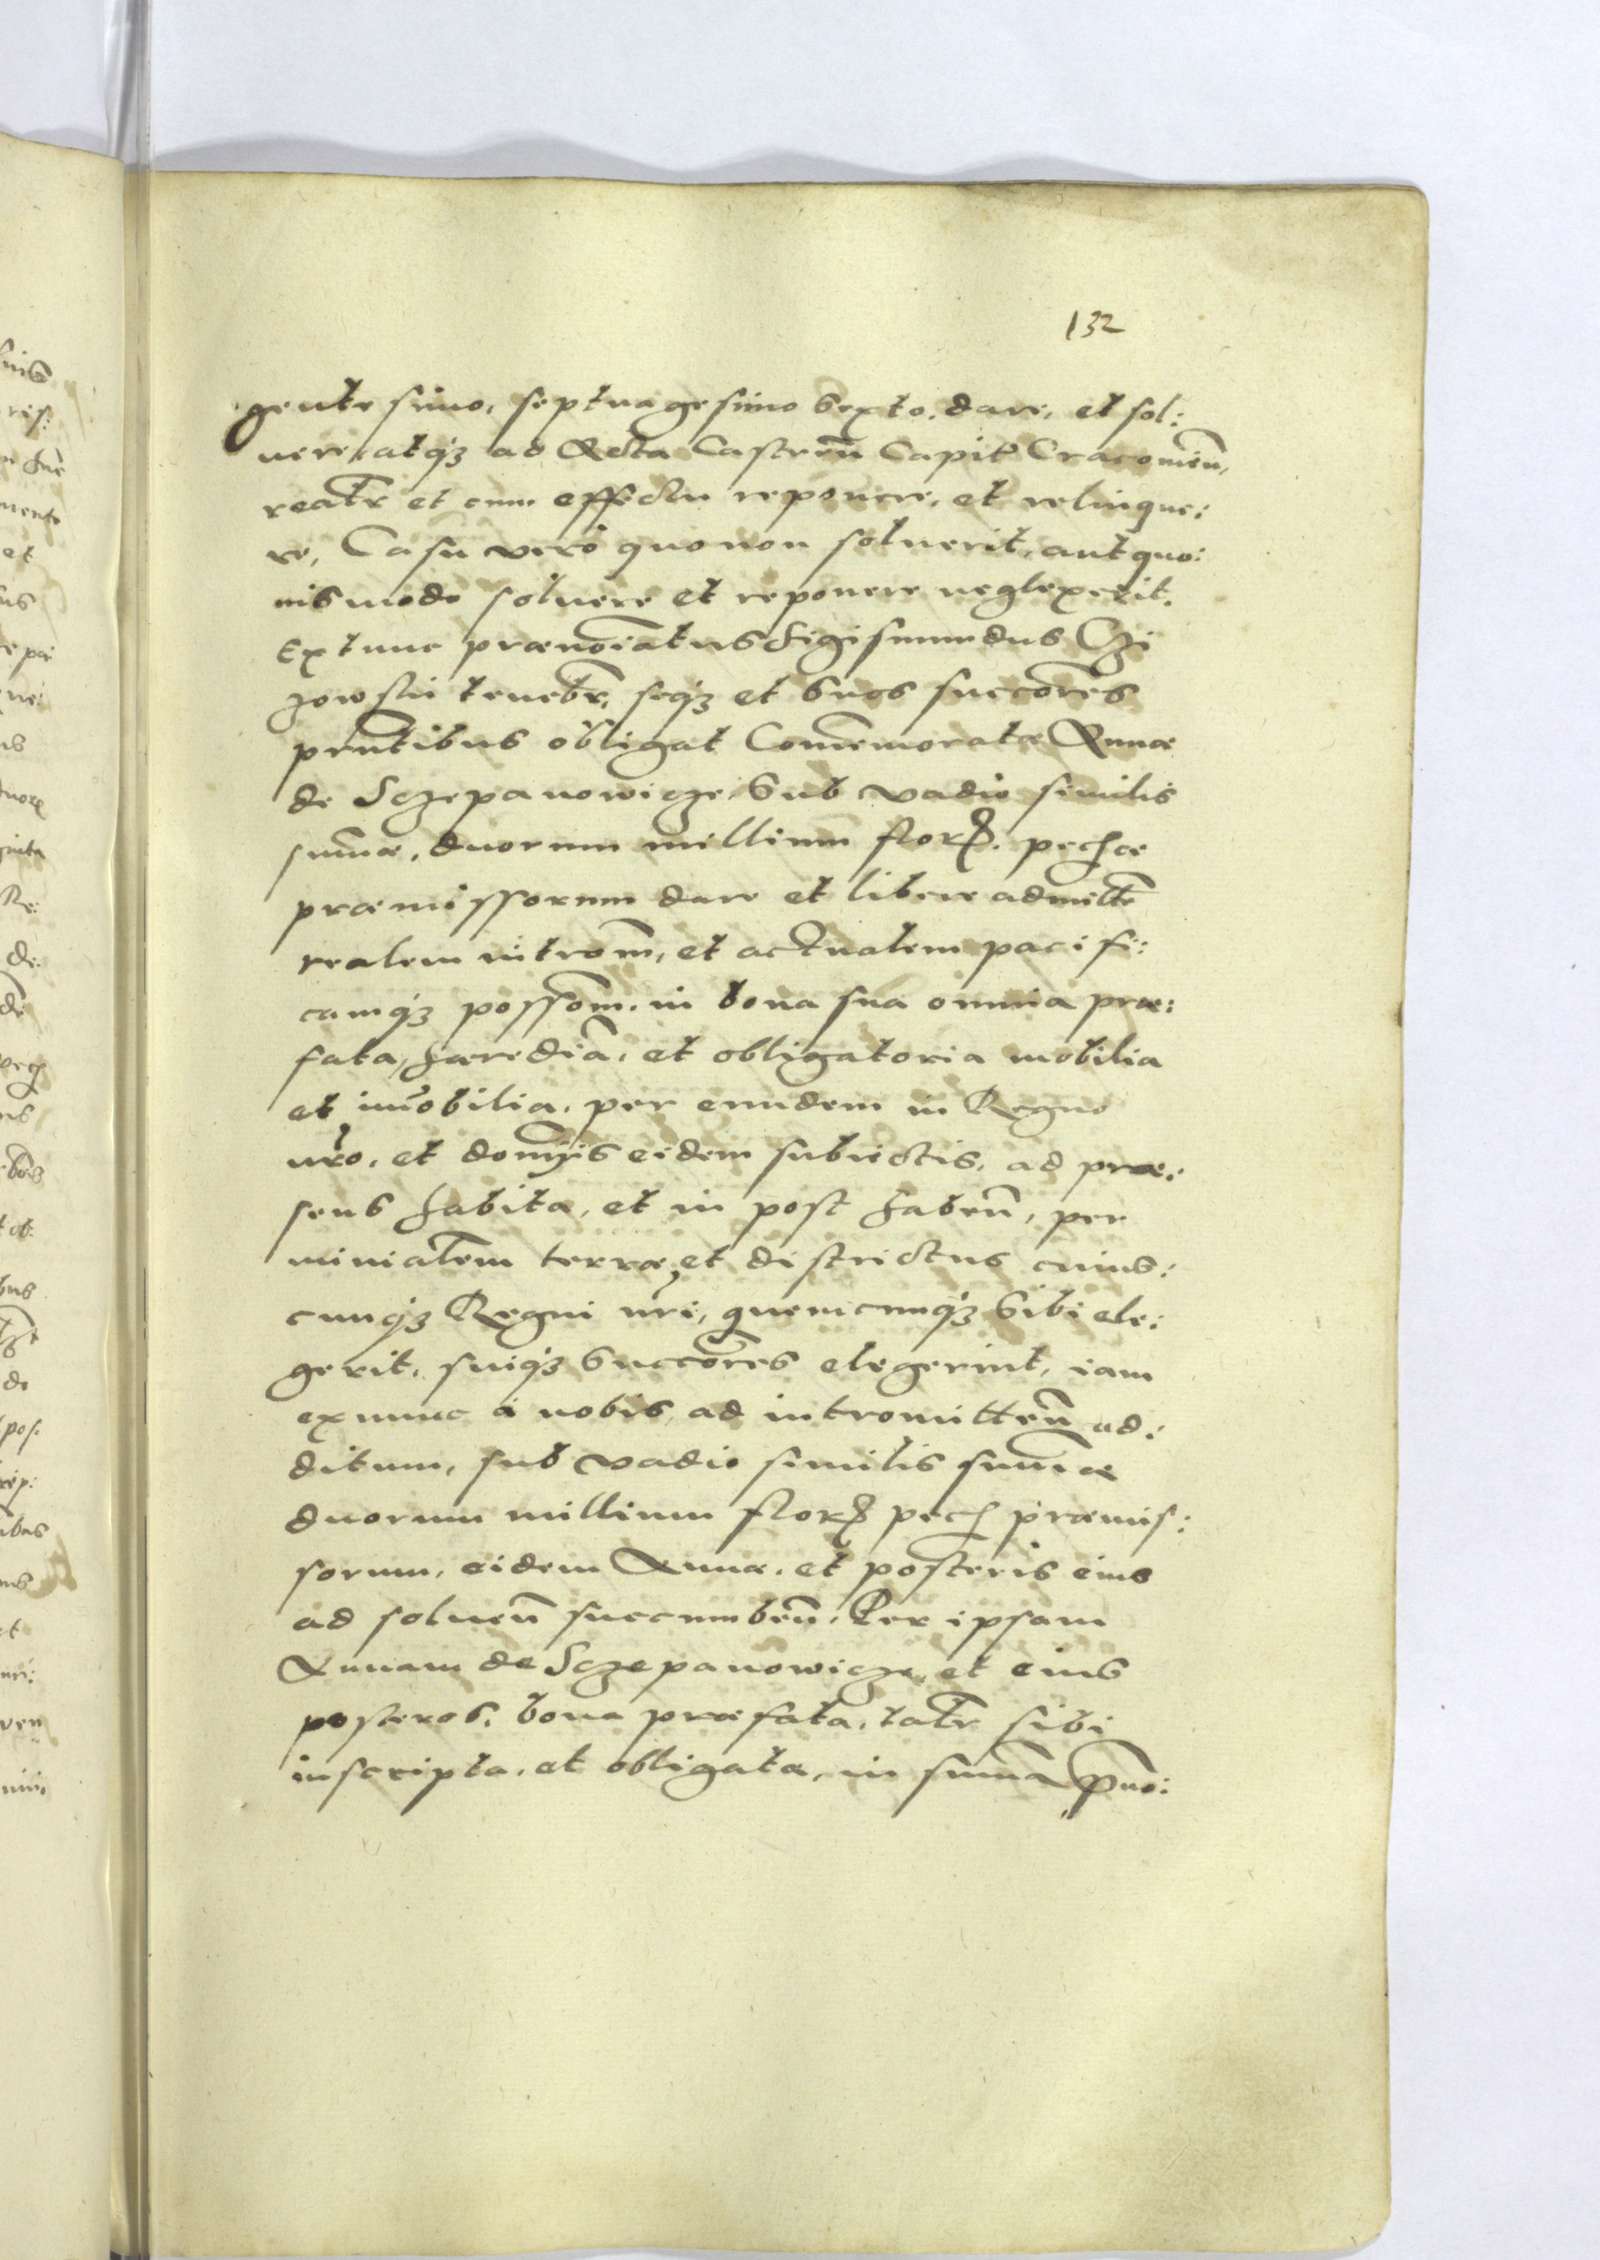 132
gentesimo, septuagesimo sexto, dare, et sol:
uere, atq3 ad Acta Castreñ Capit Cracouieñ,
realr et cum effectu reponere, et relinque:
re, Casu vero quo non soluerit, aut quo:
uismodo soluere et reponere neglexerit.
Extunc prænoiatus Sigismundus Czi
zowski tenebr, seq3 et suos succores
prntibus obligat Comemoratæ Annæ
de Sczepanowicze sub vadio similis
sumæ, duorum millium flor. pech ce
præmissorum dare et libere admitte
realem introm, et actualem pacifi:
camq3 possom, in bona sua omnia præ:
fata, hæredia, et obligatoria mobilia
et imobilia, per eundem in Regno
nro, et domijs eidem subiectis, ad præ:
sens habita, et in post habeñ, per
minialem terræ et districtus cuius:
cunq3 Regni nri, quemcunq3 sibi ele:
gerit, suiq3 succores elegerint, iam
exnunc à nobis, ad intromitteñ ad:
ditum, sub vadio similis sumæ
duorum millium flor pech præmis:
sorum, eidem Annæ, et posteris eius
ad solueñ succumbeñ. Per ipsam
Annam de Sczepanowicze, et eius
posteros, bona præfata, talr sibi
inscripta, et obligata, in suma